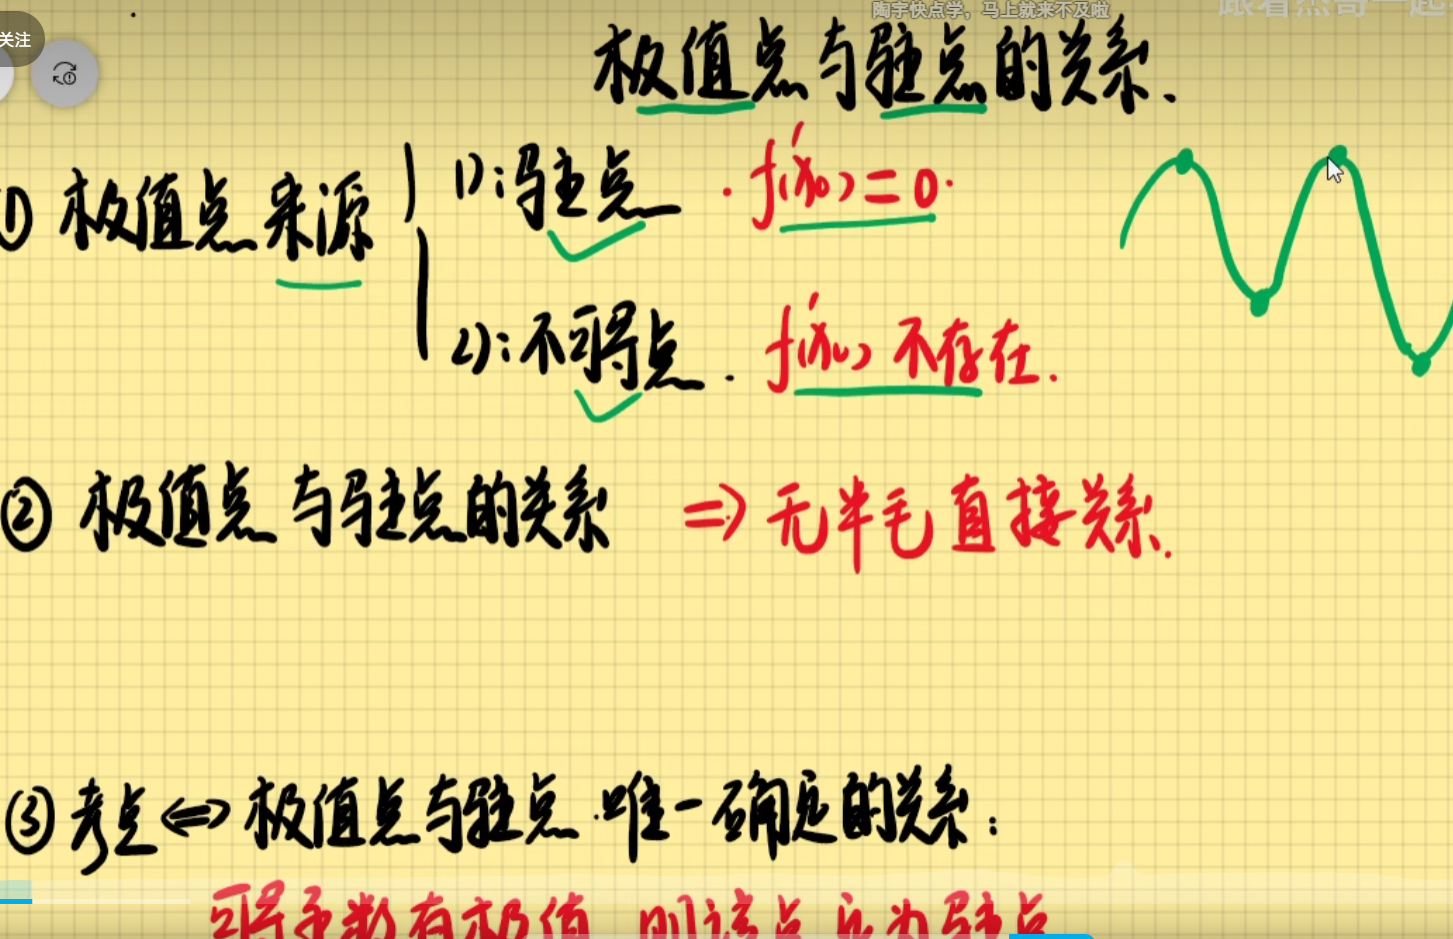 陶宇快点学，马上就来不及啦
跟着杰哥一起
关注
极值点与驻点的关系.
① 极值点来源
1):驻点. f'(x₀)=0.
2):不可导点. f'(x₀)不存在.
② 极值点与驻点的关系 => 无半毛直接关系.
③ 考点<=>极值点与驻点.唯一确定的关系:
可导函数有极值,则该点应为驻点